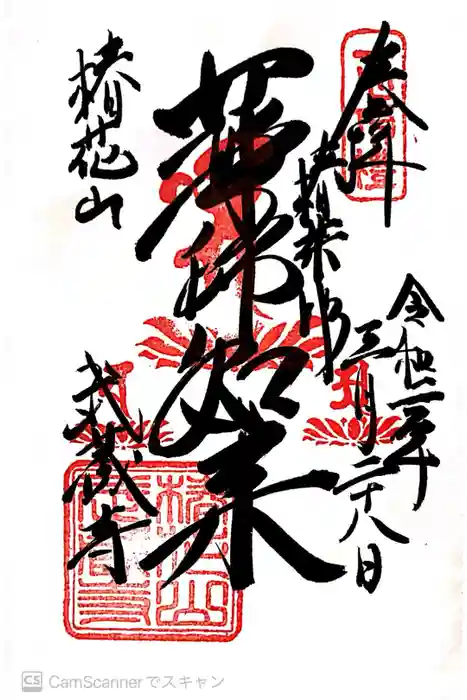 奉拝
令和二年
三月二十八日
薬師如来
椿花山
武蔵寺
CamScannerでスキャン